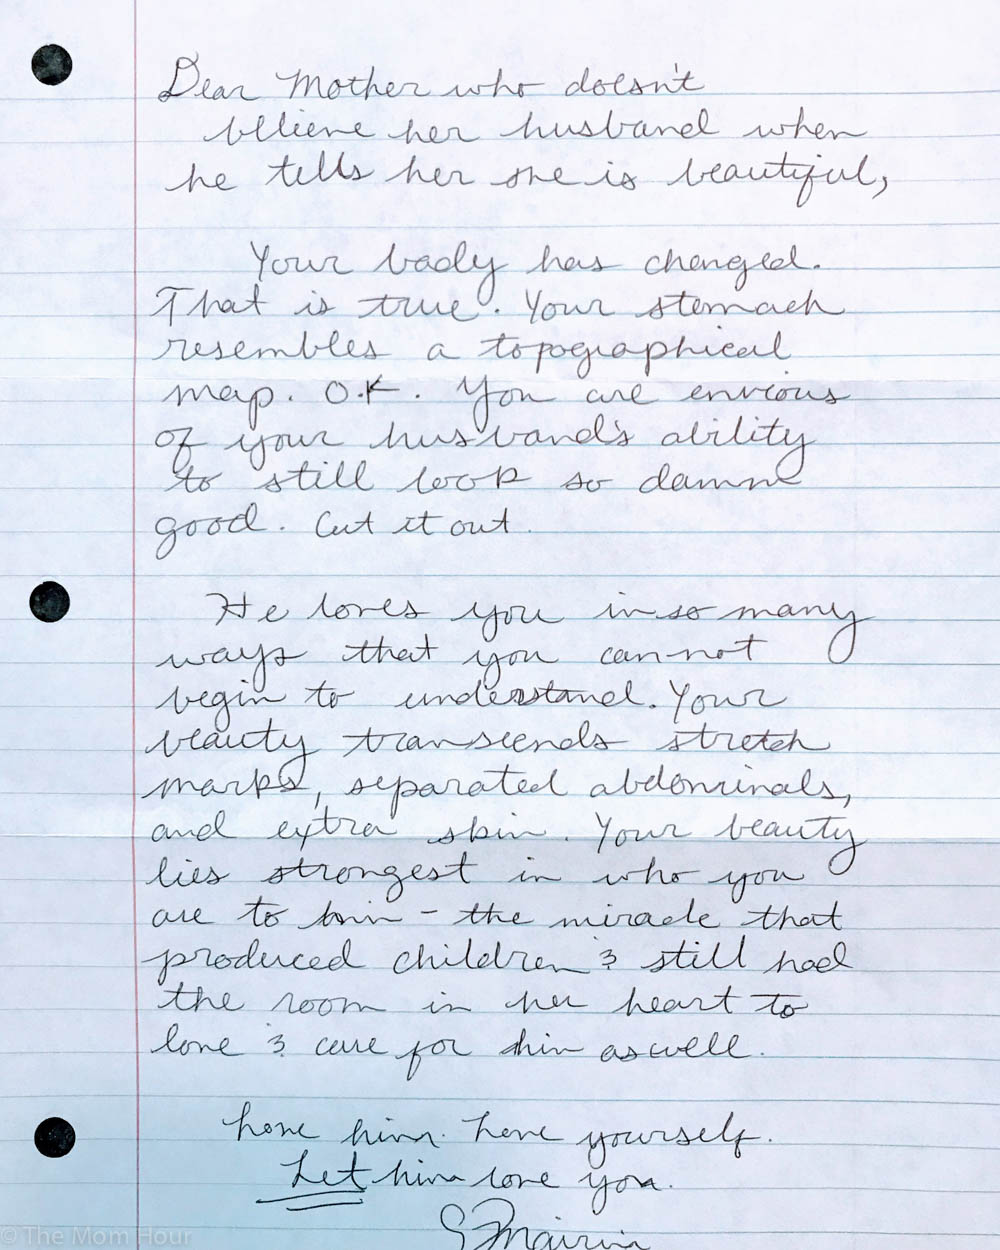 Dear Mother who doesn't
believe her husband when
he tells her she is beautiful,
Your body has changed.
That is true. Your stomach
resembles a topographical
map. O.K. You are envious
of your husband's ability
to still look so damn
good. Cut it out.
He loves you in so many
ways that you cannot
begin to understand. Your
beauty transcends stretch
marks, separated abdominals,
and extra skin. Your beauty
lies strongest in who you
are to him - the miracle that
produced children & still had
the room in her heart to
love & care for him as well.
Love him. Love yourself.
Let him love you.
© The Mom Hour